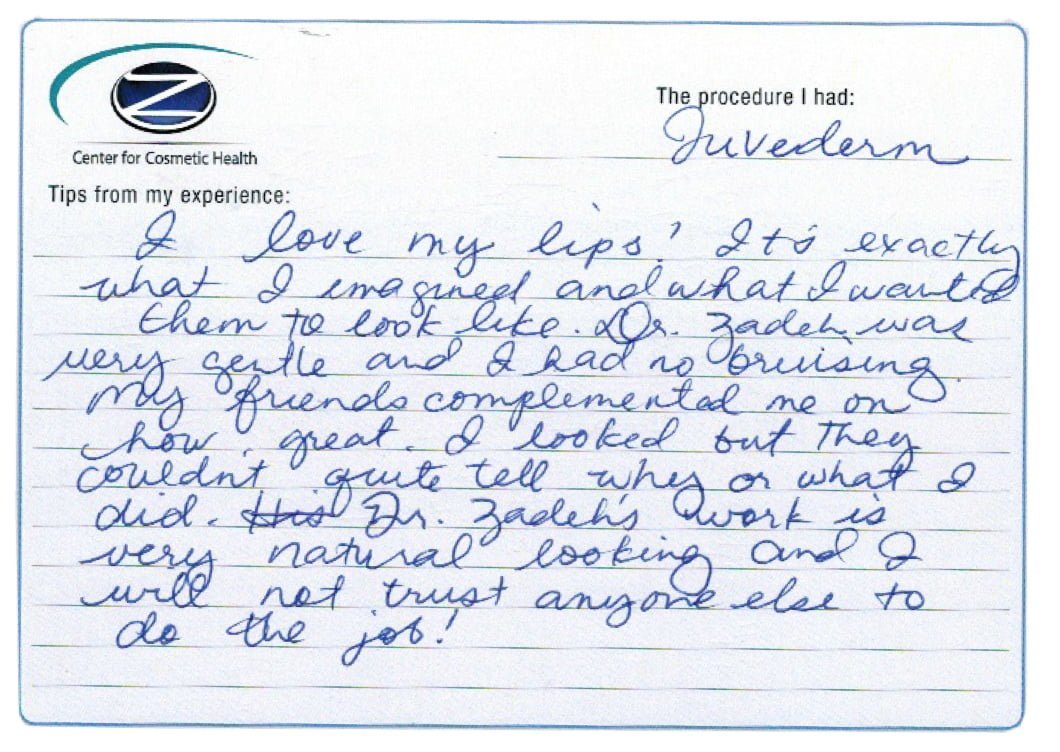 Z
Center for Cosmetic Health
The procedure I had:
Juvederm
Tips from my experience:
I love my lips! It's exactly
what I imagined and what I wanted
them to look like. Dr. Zadeh was
very gentle and I had no bruising.
My friends complemented me on
how great I looked but they
couldn't quite tell why or what I
did. His Dr. Zadeh's work is
very natural looking and I
will not trust anyone else to
do the job!